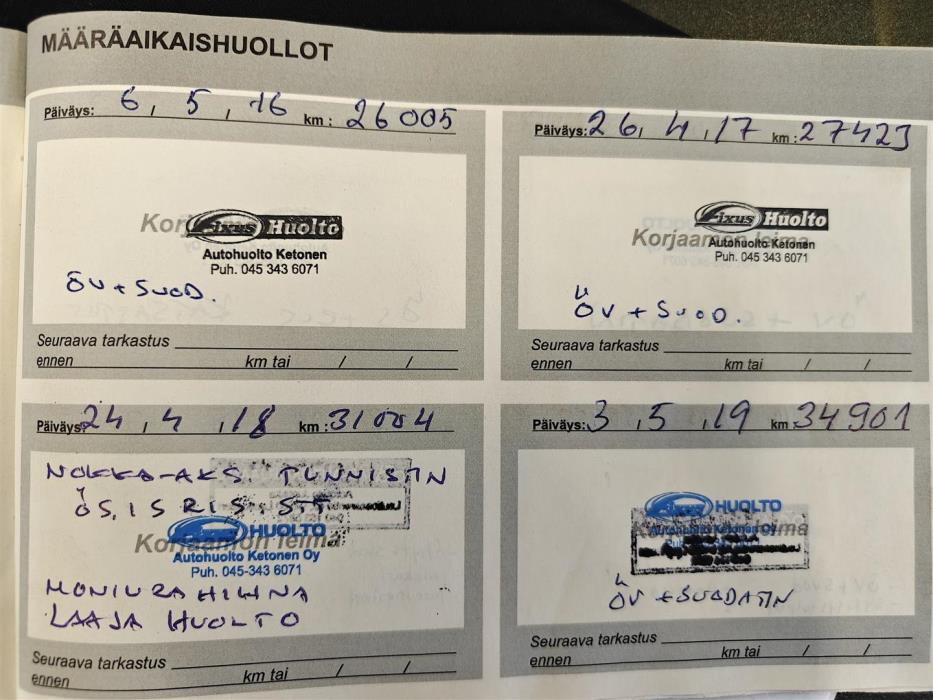 MÄÄRÄAIKAISHUOLLOT
Päiväys: 6, 5, 16 km: 26005
Fixus Huolto
Autohuolto Ketonen
Puh. 045 343 6071
ÖV + SUOD.
Seuraava tarkastus
ennen km tai / /
Päiväys: 26, 4, 17 km: 27423
Fixus Huolto
Korjaamon leima
Autohuolto Ketonen
Puh. 045 343 6071
ÖV + SUOD.
Seuraava tarkastus
ennen km tai / /
Päiväys: 24, 4, 18 km: 31004
NOKKA-AKS. TUNNISTIN
ÖS, IS RS, ST
HUOLTO
Korjaamon leima
Autohuolto Ketonen Oy
Puh. 045-343 6071
MONIURAHIHNA
LAAJA HUOLTO
Seuraava tarkastus
ennen km tai / /
Päiväys: 3, 5, 19 km 34901
HUOLTO
Autohuolto Ketonen Oy
ÖV + SUODATIN
Seuraava tarkastus
ennen km tai / /